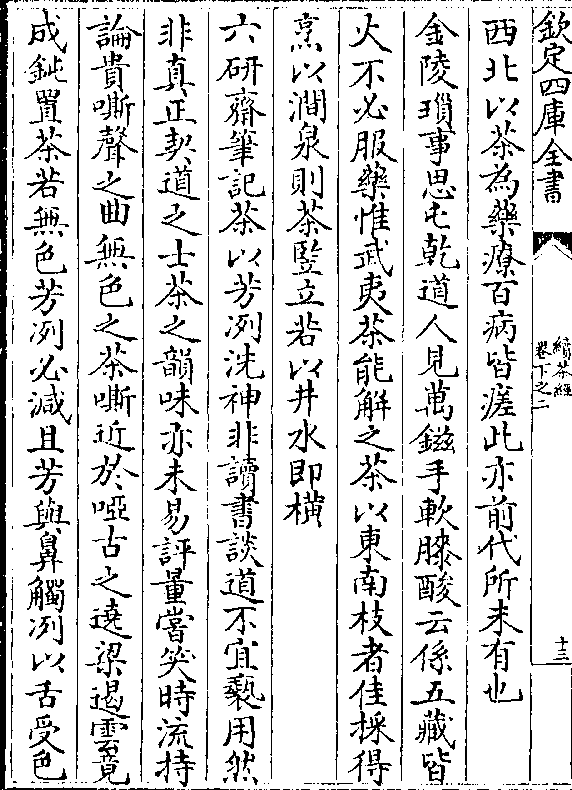 欽定四庫全書
續茶經
卷下之二
十三
西北以茶為藥療百病皆瘥此亦前代所未有也
金陵瑣事思屯乾道人見萬鎡手軟膝酸云係五藏皆
火不必服藥惟武夷茶能解之茶以東南枝者佳採得
烹以澗泉則茶竪立若以井水即橫
六研齋筆記茶以芳洌洗神非讀書談道不宜褻用然
非真正契道之士茶之韻味亦未易評量嘗笑時流持
論貴嘶聲之曲無色之茶嘶近於啞古之遶梁遏雲竟
成鈍置茶若無色芳洌必減且芳與鼻觸洌以舌受色